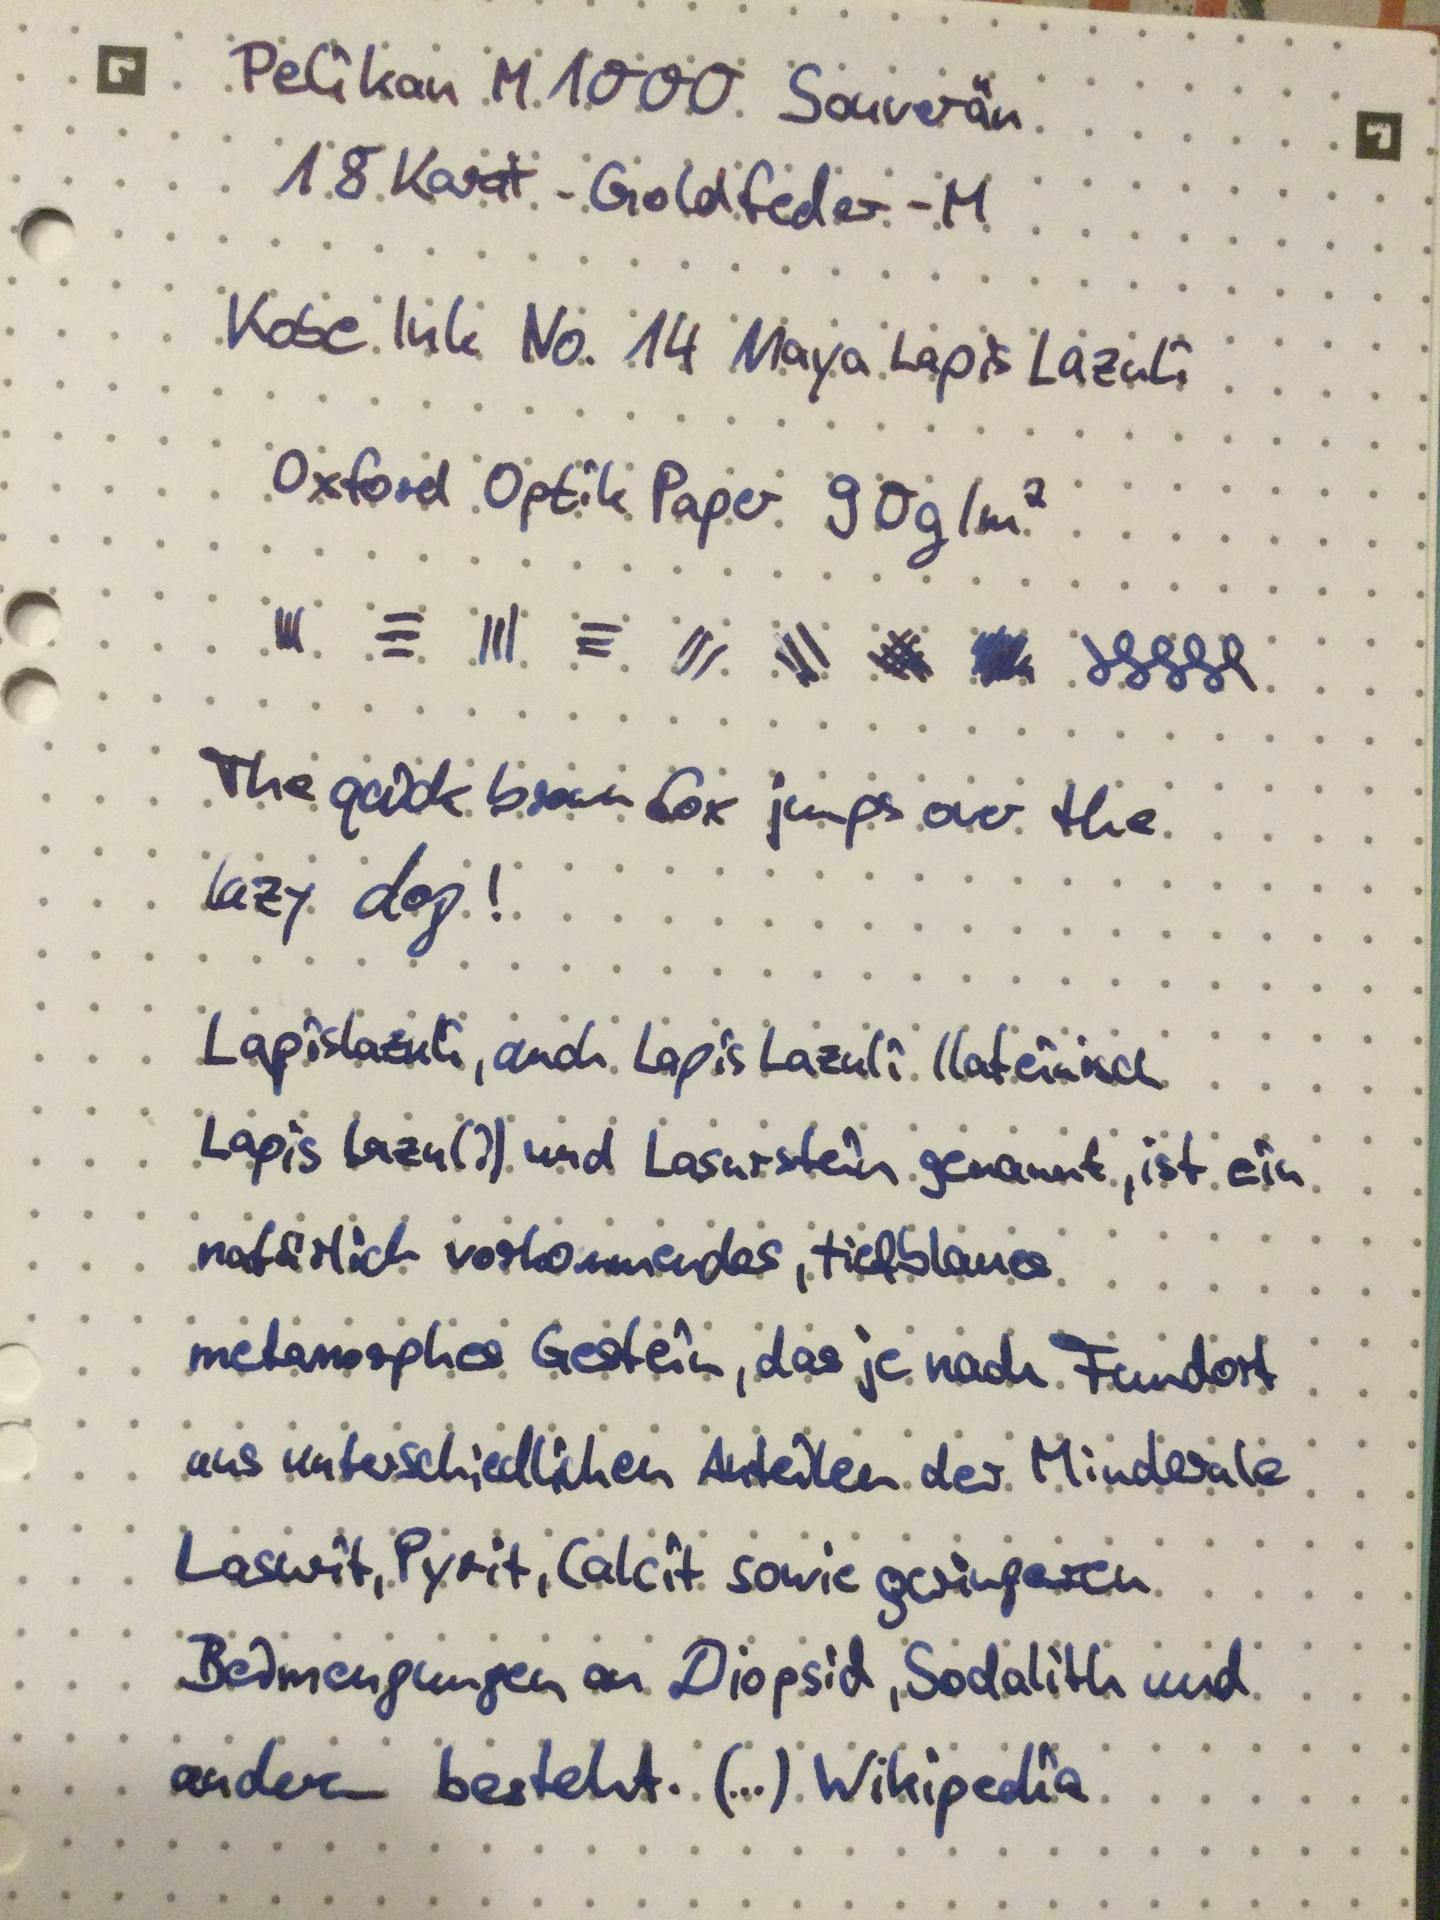 Pelikan M1000 Souverän
18 Karat - Goldfeder - M
Kobe Ink No. 14 Maya Lapis Lazuli
Oxford Optik Paper 90g/m²
The quick brown fox jumps over the
lazy dog!
Lapislazuli, auch Lapis Lazuli (lateinisch
Lapis lazuli) und Lasurstein genannt, ist ein
natürlich vorkommendes, tiefblaues
metamorphes Gestein, das je nach Fundort
aus unterschiedlichen Anteilen der Minderale
Lasurit, Pyrit, Calcit sowie geringeren
Beimengungen an Diopsid, Sodalith und
andern besteht. (...) Wikipedia